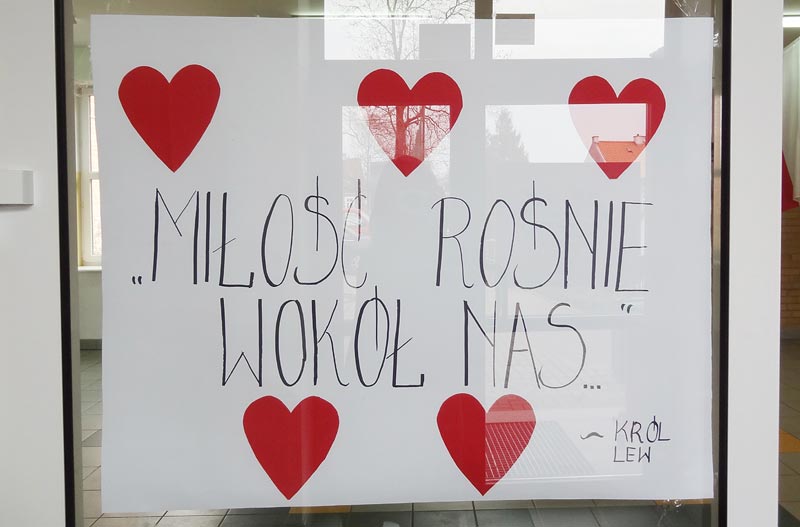 „MIŁOŚĆ ROŚNIE
WOKÓŁ NAS..."
~ KRÓL
LEW